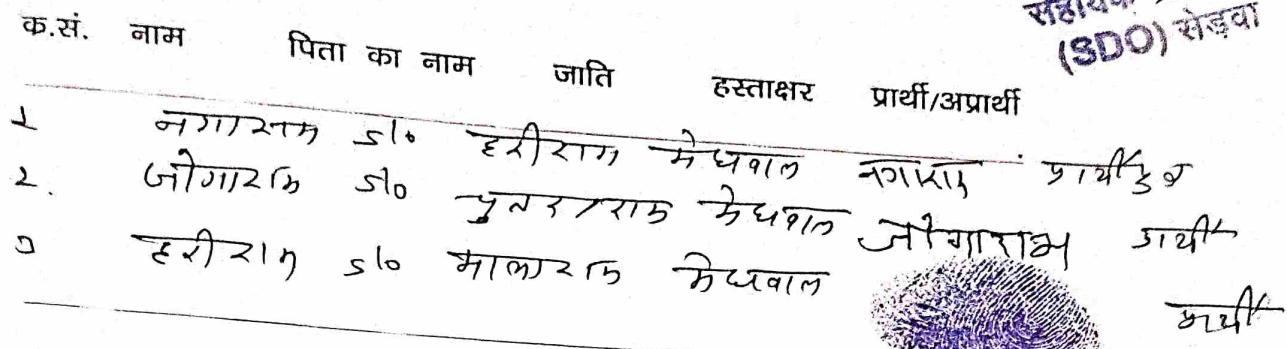 सहायक
(SDO) सेड़वा
क.सं. नाम पिता का नाम जाति हस्ताक्षर प्रार्थी/अप्रार्थी
1 नगाराम S/o हरीराम मेघवाल नगाराम प्रार्थी
2. जोगाराम S/o पुनराराम मेघवाल जोगाराम प्रार्थी
3 हरीराम S/o मालाराम मेघवाल प्रार्थी